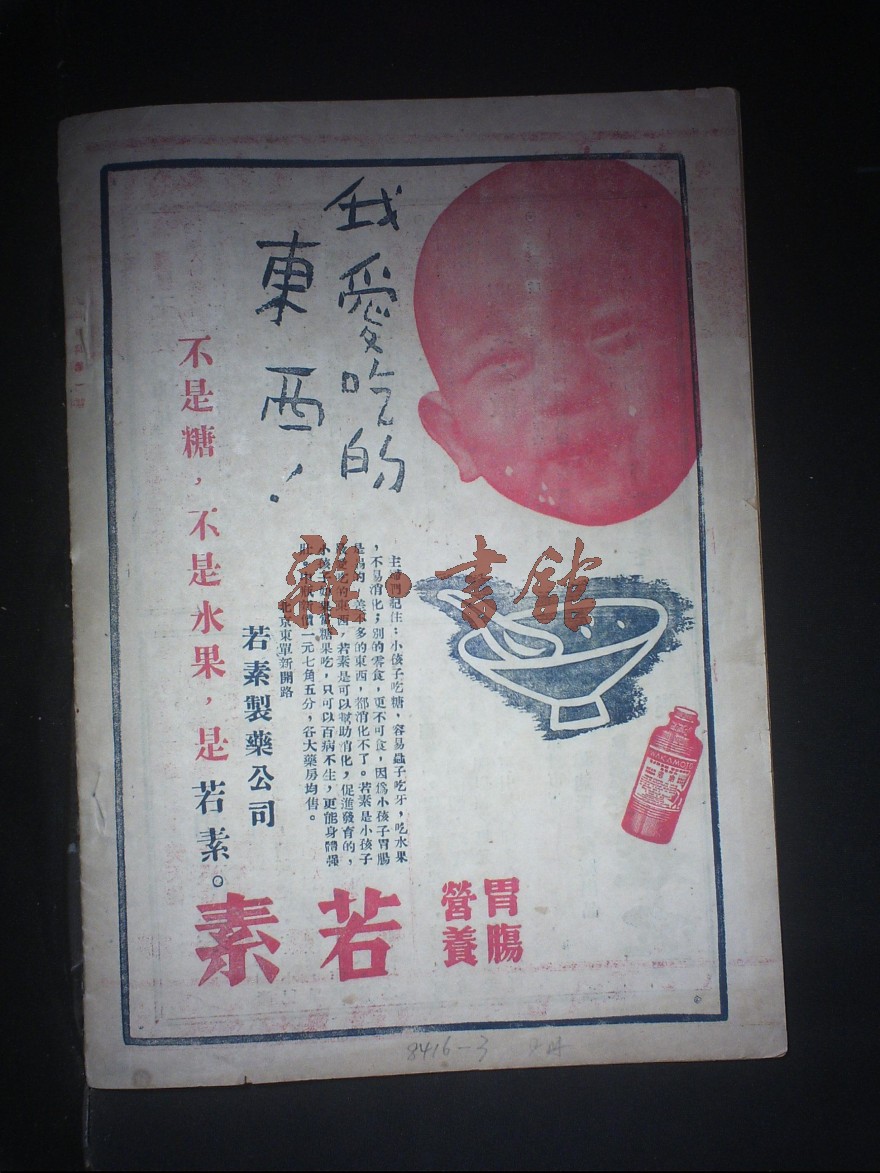 我愛吃的
東西！
主婦們記住：小孩子吃糖，容易蟲子吃牙，吃水果
，不易消化；別的零食，更不可食，因爲小孩子胃腸
是弱的，差不多的東西，都消化不了。若素是小孩子
愛吃的東西，若素是可以幫助消化，促進發育的，
小孩子糖果吃，只可以百病不生，更能身體強
壯價一元七角五分，各大藥房均售。
北京東單新開路
若素製藥公司
不是糖，不是水果，是若素。
胃腸
營養
若素
WAKAMOTO
雜·書館
8416-3